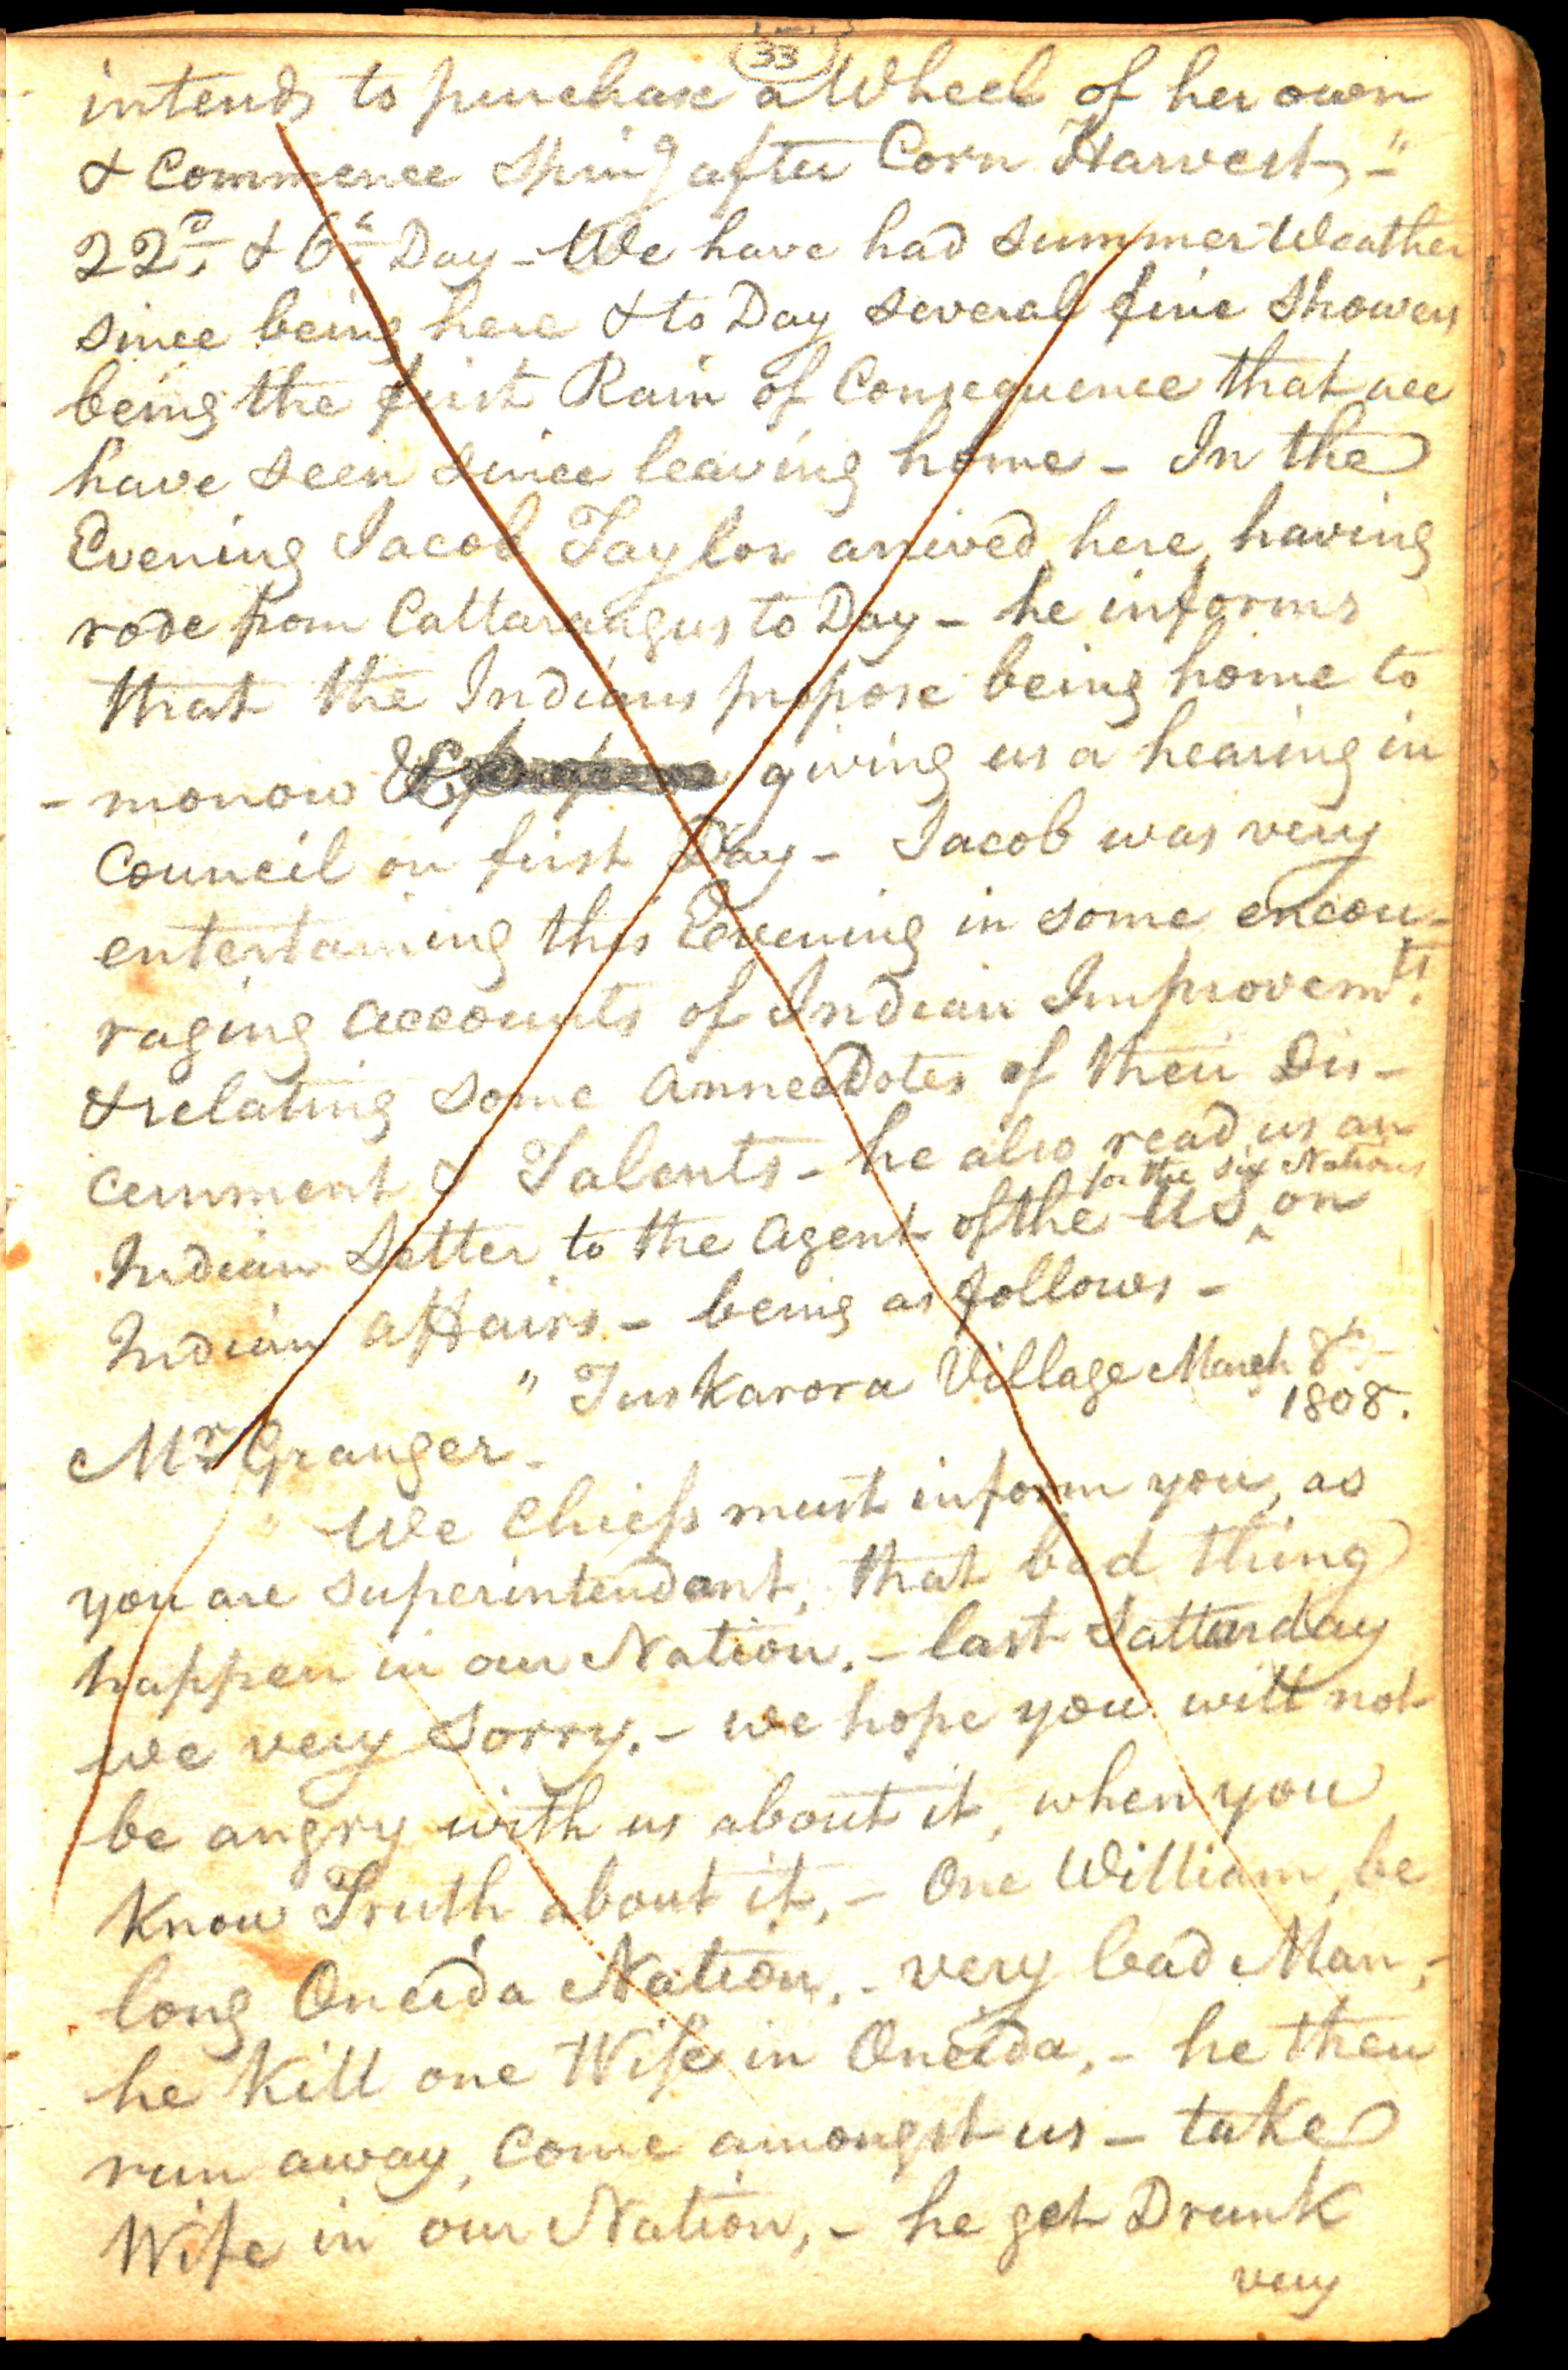 33
intends to purchase a Wheel of her own
& Commence Sping after Corn Harvest,-"
22d. & 6th. Day - We have had summer Weather
since being here & to Day several fine Showers
being the first Rain of Consequence that we
have seen since leaving home - In the
Evening Jacob Taylor arrived here, having
rode from Cattaraugus to Day - he informs
that the Indians propose being home to
-morrow & giving us a hearing in
Council on first Day - Jacob was very
entertaining this Eevening in some encou-
raging accounts of Indian Improvemts.
& relating some Annecdotes of their Dis-
cernment & Talents - he also read us an
for the Six Nations
Indian Letter to the Agent of the US ^ on
Indian Affairs - being as follows -
" Tuskarora Village March 8th -
1808.
Mr. Granger -
" We Chiefs must inform you, as
you are superintendant, that bad thing
happen in our Nation. - last Satturday
we very sorry. - we hope you will not
be angry with us about it, when you
Know Truth about it, - One William, be
long Oneida Nation, - very bad Man, -
he Kill one Wife in Oneida, - he then
run away, Come amongst us - take
Wife in our Nation, - he get Drunk
very